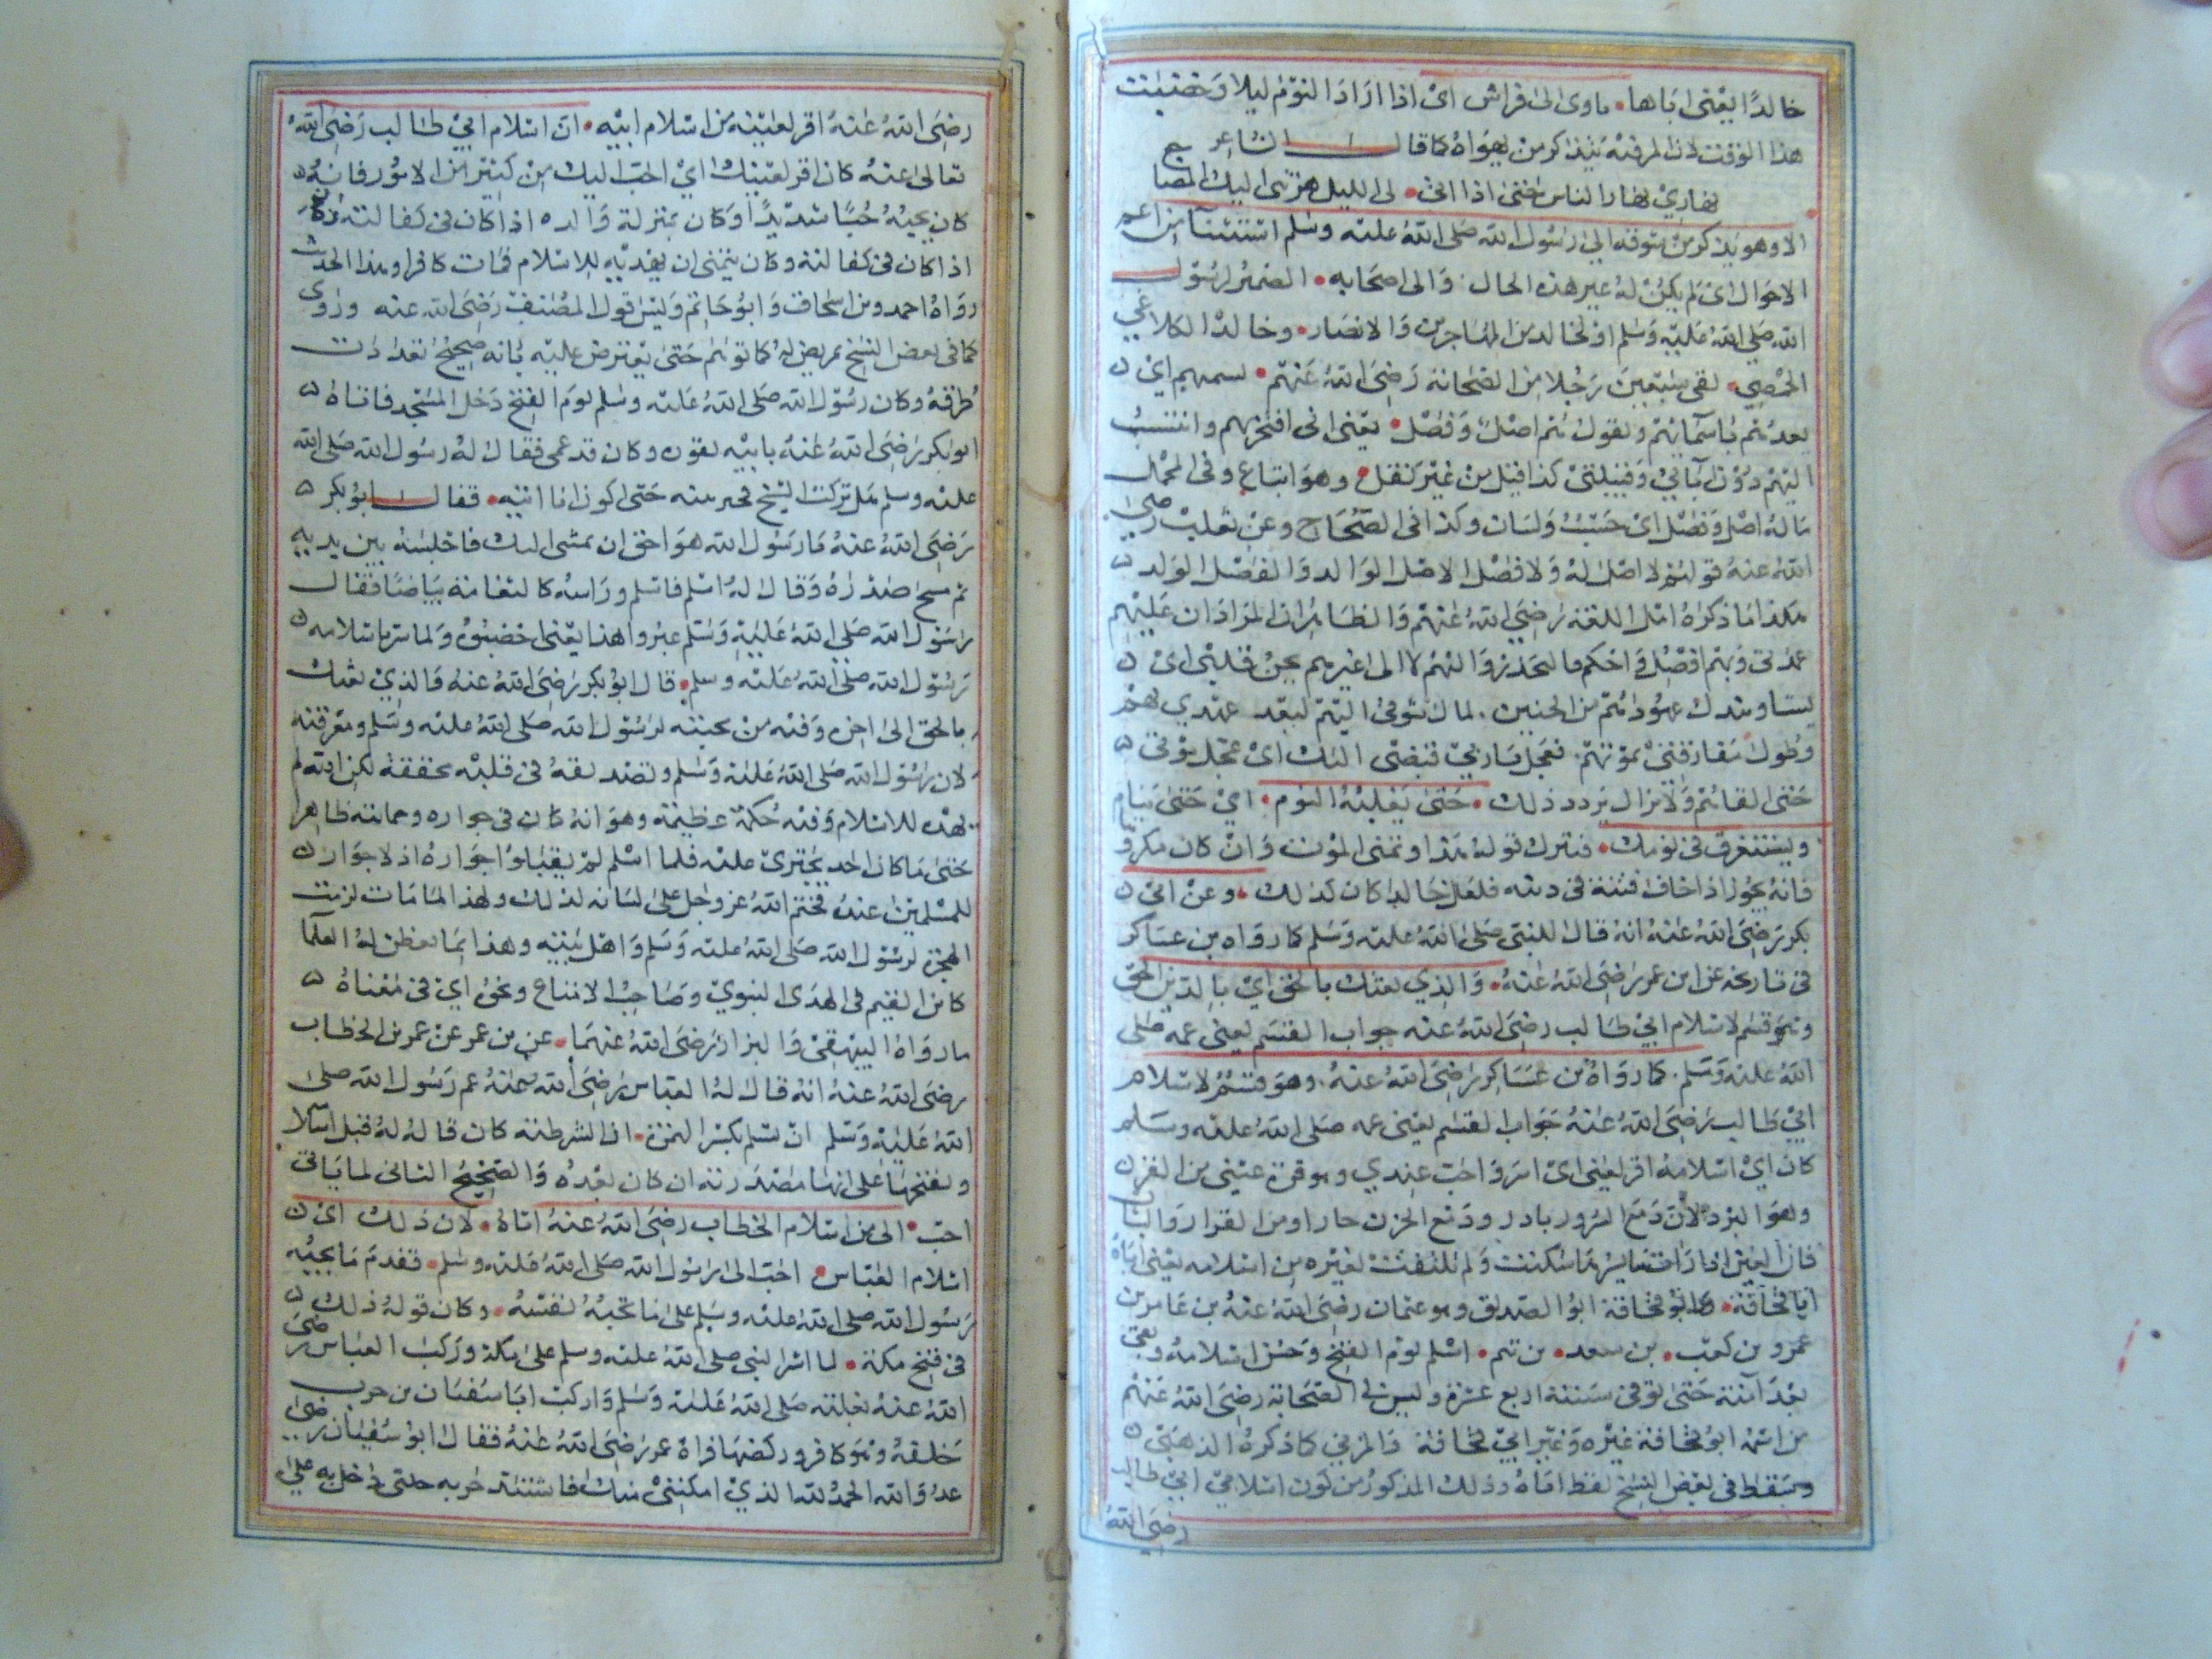 خالدًا يعني اباها. ياوى الى فراش اىْ اذا ارَادَ النوم ليلا وَخصّيت
هذا الوقت لان المرفيه يتذكر من يهواه كما قال الشاعر
نهارِيْ نهار الناس حتىٰ اذا اتى. لى الليل هزتنى اليك المضا
الا وهو يذكر من شوقه الىٰ رسُول الله صَلى اللهُ عليه وسَلم استثناء من اعم
الاحوال اىْ لم يكنْ لهُ غير هذه الحال. وَالى اصحَابه. الضميرُ لرسُول
الله صَلى اللهُ عَليْه وَسَلم او لخالد من المهَاجرين وَالانصَار. وخالدْ الكلاعي
الحمْصِي. لقى سَبْعِينَ رَجُلا مِن الصّحابة رَضِيَ اللهُ عَنهمْ. يسميهم اىْ
يعدّهم باسْمائهمْ ويقول هُم اصْلىْ وَفصْلى. يعْني انى افتخر بهم وانتسبُ
اليْهم دُوْن آبائِيْ وَقبيلتىْ كذا قيل منْ غيْر نقل وهوَ اتباع وفى المجْمل
مَا لهُ اصْل وَفصْل اىْ حَسَبُ وَلسَان وكذا فى الصّحَاح وعنْ ثعلبْ رضىَ
اللهُ عنهُ قولهُمْ لا اصْل لهُ وَلا فصْل الاصْل الوَالد وَالفصْل الوَلد
هكذا مَا ذكرَهُ اهْل اللغة رَضِيَ اللهُ عَنْهُمْ وَالظاهرُ ان المرَاد ان عَليْهم
عُمْدتى وَبهم افصْل وَاحكم ما ليحَدث وَاليْهُم لا الى غيرهم يحنُ قلبى اىْ
يشتاو
وطول مفارقتىْ بموْتهمْ. فعجل يا ربيْ قبضى اليك اىْ عجّل موْتى
حَتىٰ القاهُم وَلا يزال يردد ذلك. حَتىٰ يَغلبُهُ النوم. ايْ حَتىٰ يَنام
ويسْتغرق فى نومك. فيترك قولهُ هذا وتمنى الموْت وَانْ كان مكروً
فانهُ يجُوز اذا خاف فتنة فى دينه فلعَل خالدا كان كذلك. وعنْ ابىْ
بكر رَضِيَ اللهُ عَنهُ انهُ قال للنبى صَلى اللهُ عليْه وَسَلم كما روَاه بن عسَاكر
فى تاريخه عن ابن عمر رَضِيَ اللهُ عَنهُ. وَالذِي بعثك بالحق ايْ بالدّين الحق
وهوَ قسَم لاسْلام ابيْ طالب رضِيَ اللهُ عنه جواب القسَم يعنى عمه صَلى
اللهُ عليْه وَسَلم. كما روَاهُ بن عسَاكِر رَضِيَ اللهُ عنهُ. وهوَ قسَمُ لاسْلام
ابيْ طالب رَضِيَ اللهُ عَنهُ جَوابَ القسَم يعني عمه صَلى اللهُ عليْه وسَلم
كان ايْ اسْلامهُ اقر لعيْنى اىْ اسَر وَاحَبّ عِندِي وهو قرة عيْنى من القر
وهُوَ البرْد لانّ دَمَع السُّرور بادر ودَمْع الحزن حارا ومن القرار وَالثبات
فانَّ العيْن اذا رَات مَا يسُرها سَكنت وَلمْ تلتفتْ لغيْره مِن اسْلامه يعْني ابَاهُ
ابَا قحَافة. وابُو قحَافة ابُو الصّديق وهو عثمان رضِيَ اللهُ عنهُ بن عَامر بن
عمْرو بن كعْب. بن سعد. بن تيم. اسْلم يوْم الفتح وَحَسُن اسْلامهُ وبقى
بعْدَ ابْنهِ حَتىٰ توفى سَنة اربع عشرة وليس فى الصّحَابة رضِيَ اللهُ عَنهُم
من اسْمهُ ابُو قحافة غيْره وَغيْر ابيْ قحافة وَالمزنى كما ذكرهُ الذهبىْ
وسَقط فى بعْض النسَخ لفظ ابَاهُ وذلك المذكورُ من كون اسْلام ابيْ طالب
رضِيَ اللهُ
رضِيَ اللهُ عَنهُ اقر لعيْنه من اسْلام ابيْه. انّ اسْلام ابيْ طالب رَضِيَ اللهُ
تعالىٰ عنهُ كان اقر لعيْنك ايْ احَبّ اليك مِنْ كثيْر من الامُور فانهُ
كان يحبهُ حُبًّا شديْدًا وَكان بمنزلة وَالده اذا كان فى كفالته
اذا كان فى كفالته وكان يتمنى ان يهْديْه للاسْلام فمَات كافرا وهذا الحديث
روَاهُ احمد وبن اسْحاق وَابو حَاتِم وَليْسَ قول المصَنِفِ رَضِيَ الله عنه ورُوِى
كما فى بعض النسَخ تمريضَ لهُ كما توهم حَتىٰ يعْترض عليْه بأنه صحيْح تعدادت
طرقهُ وكان رسُول الله صَلى اللهُ عَليْه وسَلم يومَ الفتح دَخل المسْجد فاتاهُ
ابو بكر رَضِيَ اللهُ عَنهُ بابيْه يقوده وكان قد عمى فقال لهُ رسُول الله صَلى الله
عليْه وسلم هَل تركت الشيخ فى بيته حَتى اكون انا اتيْه. فقال ابُو بكر
رَضِيَ اللهُ عنهُ يَا رَسُول الله هوَ احَق ان يمشى اليك فاجْلسَهُ بين يديه
ثم مسَح صَدْرَهُ وَقال لهُ اسْلم فاسْلم ورَاسُه كالثغامة بَيَاضًا فقال
رَسُول الله صَلى اللهُ عَليْهِ وَسَلم غيّروا هذا يعْنى اخضبُوْهُ وَلما سر باسْلامه
رَسُول الله صَلى اللهُ عَليْه وسلم. قال ابُو بكر رَضِيَ اللهُ عنهُ وَالذِيْ بعَثك
بالحق الى اخِره وَفيْه منْ محبته لرسُول الله صَلى اللهُ عليْه وسَلم ومعْرفته
لان رَسُول الله صَلى اللهُ عَليْه وَسَلم وتصْديقهُ فى قلبْه محققة لكن الله لم
يهْده للاسْلام وَفيْه حُكمْة عظيْمة وهوَ انهُ كان فى جواره وحمايته ظاهِرا
حَتىٰ مَا كان احَد يَجترىْ عليْه فلما اسْلم لمْ يقبَلوُا جوَارهُ اذ لا جوَار
للمسْلميْن عندهُ فختم اللهُ عز وجَل علىٰ لسَانه لذلك ولهذا لما مَات لزمت
الهجرة لرسُول الله صَلى اللهُ عليْه وَسَلم وَاهْل بيْته وهذا ممَا تفطن لهُ العلما
كابن القيم فى الهدَى النبويْ وصَاحِبُ الامتاع ونحْوُ ايْ فى مَعْناهُ
ما روَاهُ البيْهقىْ وَالبزار رَضِيَ اللهُ عنهُمَا. عنِ بن عمر عنْ عمر بن الخطاب
رضِيَ اللهُ عنهُ انهُ قال لهُ العبّاس رَضِيَ اللهُ عنهُ عم رَسُول الله صَلى
اللهُ عَليْهَ وَسَلم انْ تسْلم بكسْر الهمزة. ان الشرطية كان قالهُ لهُ قبل اسْلا
وبفتحهَا علىٰ انهَا مصْدَرية ان كان بَعْدهُ وَالصّحِيْحُ الثانى لما يَاتى
احَبّ. الىَ من اسْلام الخطاب رضِيَ اللهُ عنهُ ابَاهُ. لان ذلك اىْ
اسْلام العبّاس احَبّ الىٰ رَسُول الله صَلى اللهُ عَليْه وسَلم. فقدم مَا يحبّه
رَسُول الله صَلى اللهُ عليْه وسَلم علىٰ مَا تحبهُ نفسَهُ. وكان قولهُ ذلك
فى فتح مكة. لما اسْر النبى صلى اللهُ عليْه وسلم علىٰ مكة وَرَكبَ العبّاس رضىَ
اللهُ عنهُ بغلته صَلى اللهُ عَليْه وَسَلم وَاركبَ ابَا سَفيَان بن حرب
خلفهُ وَهو كافر وركضهَا فرآهُ عمر رَضِيَ اللهُ عَنهُ فقال ابُو سُفيَان رَضِىَ
عدُوّ الله الحمدُ لله الذِيْ امكننىْ منك فاشتد حربه حتى دخل به علىَ